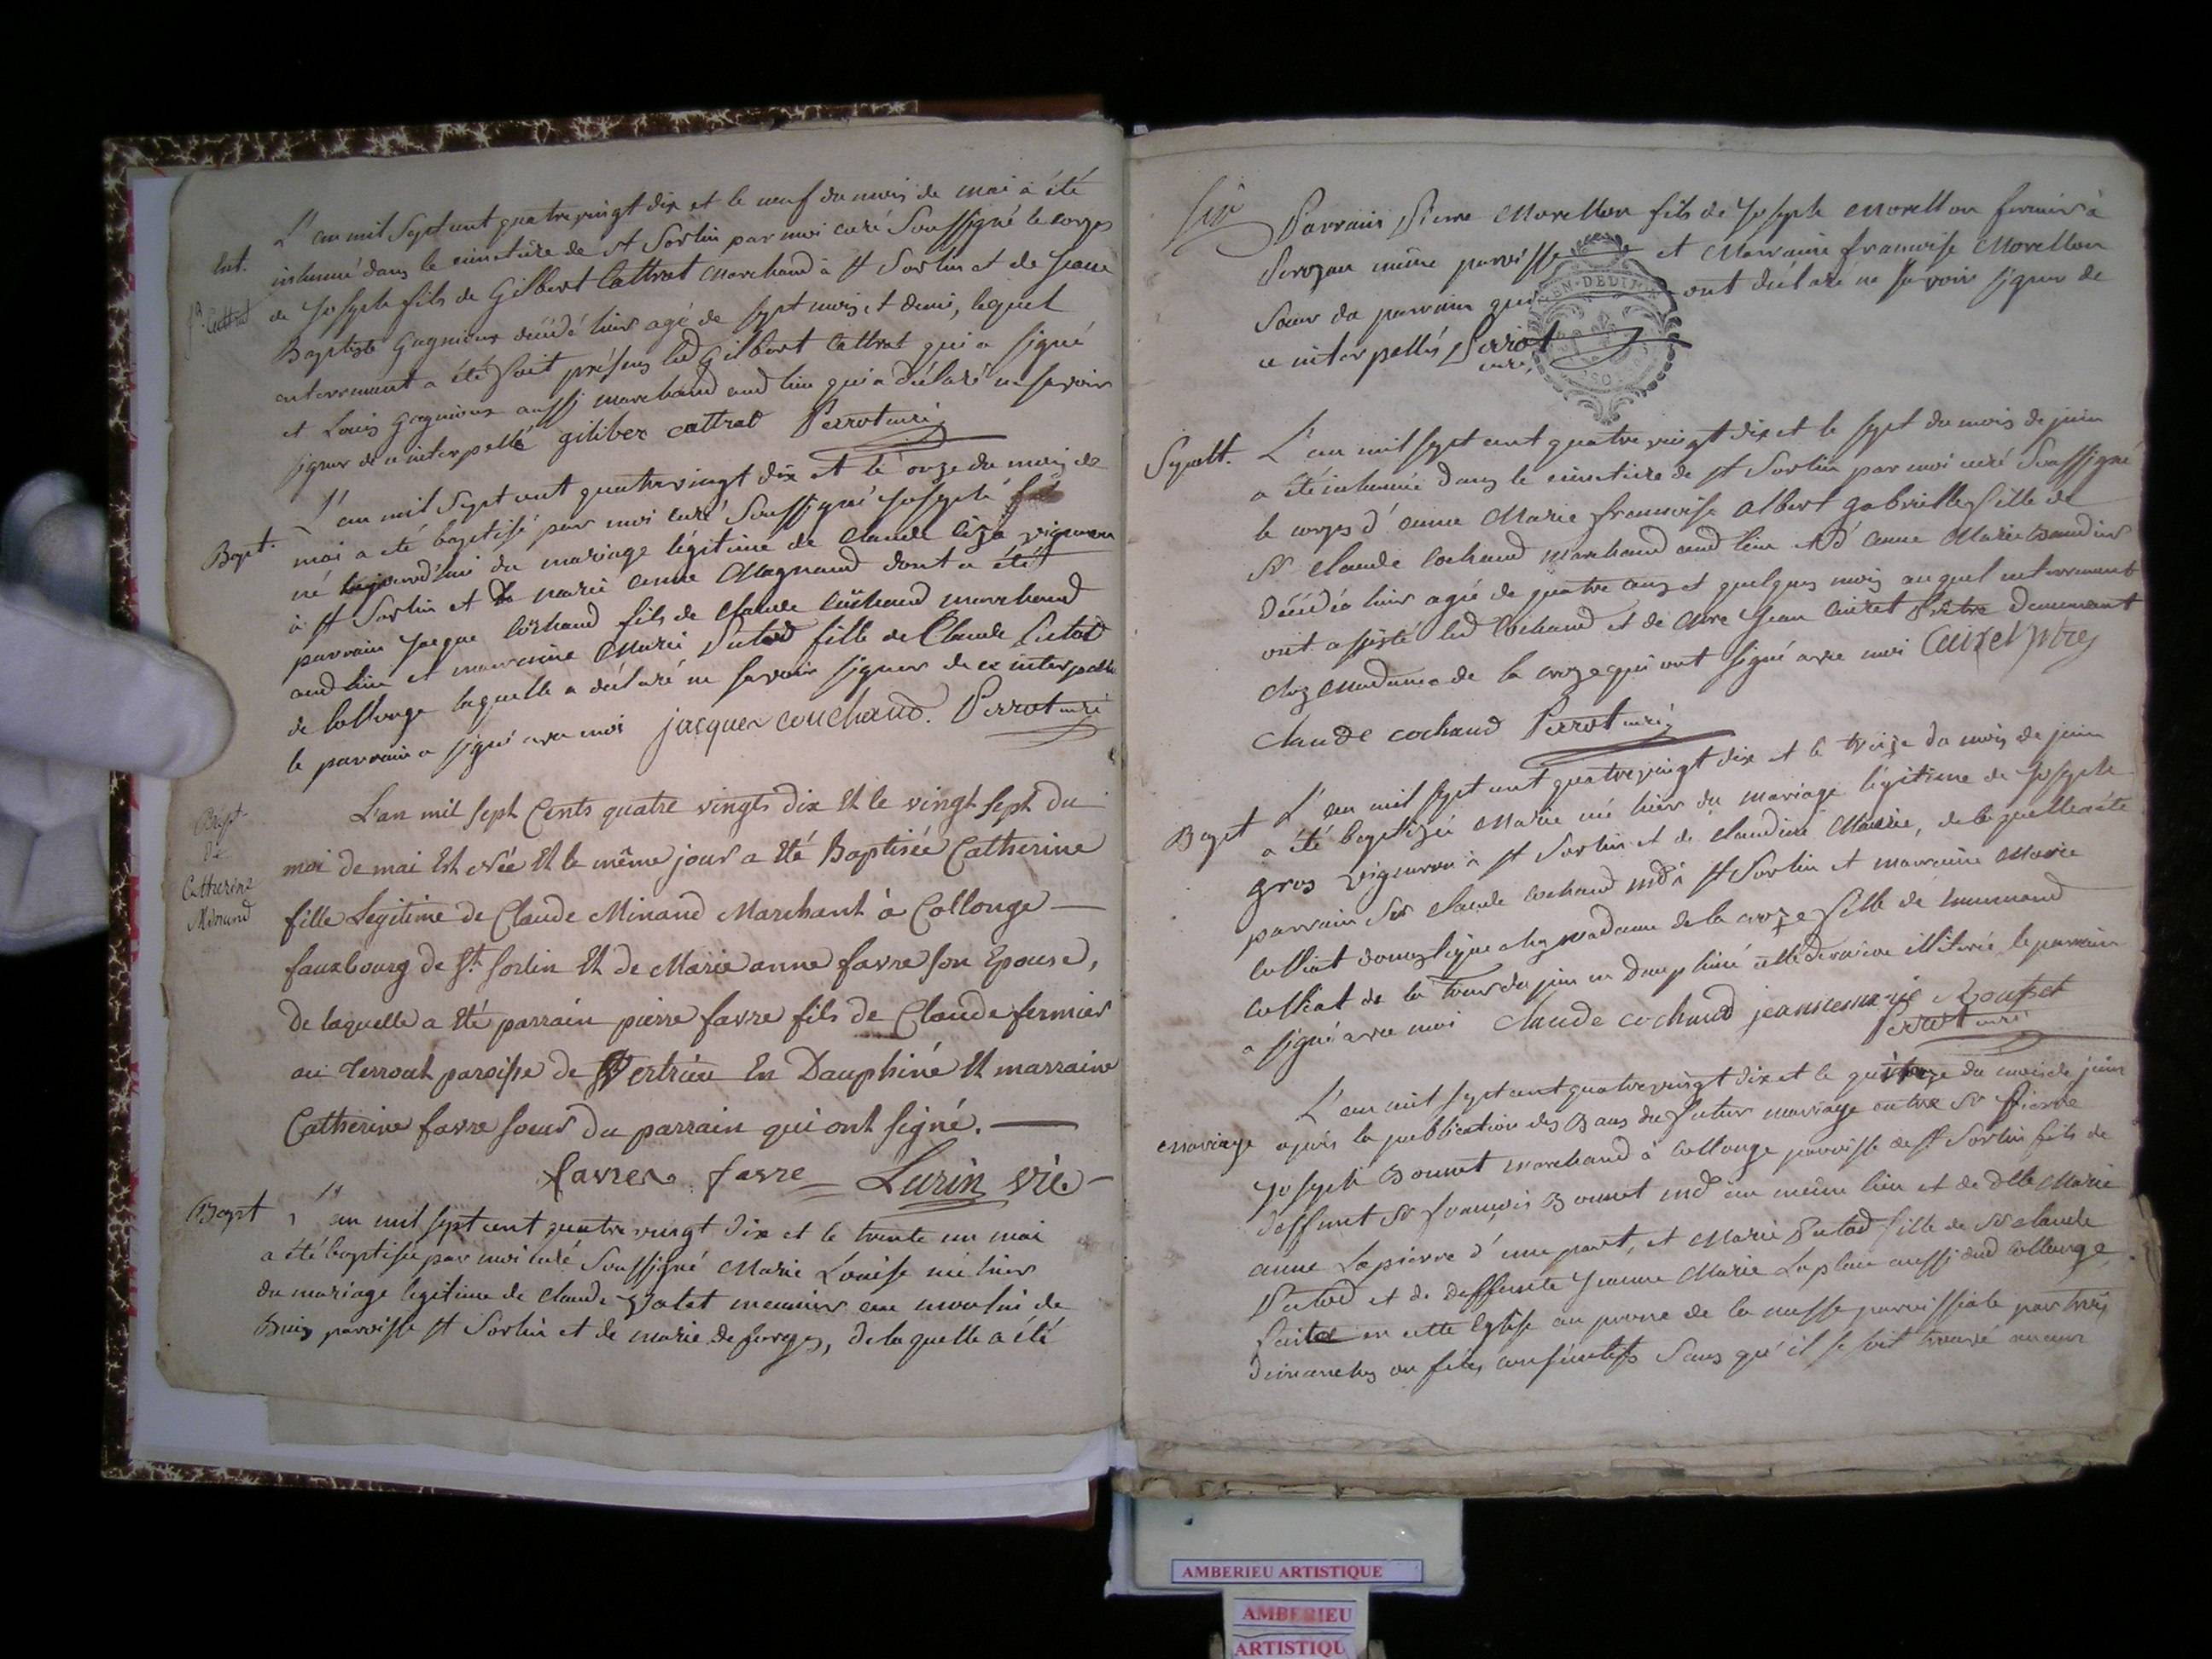 Int.
L'an mil sept cent quatre vingt dix et le neuf du mois de mai a été
inhumé dans le cimetière de St Sorlin par moi curé Soussigné le corps
jh Cattrat
de Joseph fils de Gilbert Cattrat Marchand à St Sorlin et de Jeane
Baptiste Gagnieux décédé hier agé de sept mois et demi, lequel
enterrement a été fait présens led Gilbert Cattrat qui a signé
et Louis Gagnieux aussi marchand aud lieu qui a déclaré ne savoir
signer de ce interpellé giliber cattrat Perrot curé
Bapt.
L'an mil Sept cent quatre vingt dix et le onze du mois de
mai a été baptisé par moi curé Soussigné Joseph
né aujourd'hui du mariage légitime de Claude vigneron
à St Sorlin et de marie anne Magnand dont a été
parrain Jacque Cochaud fils de Claude Cochaud marchand
aud lieu et marraine Marie Putod fille de Claude Putod
de Collonge laquelle a déclaré ne savoir signer de ce interpellée
le parrain a signé avec moi jacques couchaud. Perrot curé
Bapt
de
Catherine
Minand
L'an mil sept Cents quatre vingts dix Et le vingt sept du
moi de mai Est née Et le même jour a Eté Baptisée Catherine
fille Legitime de Claude Minand Marchant à Collonge
fauxbourg de St. Sorlin Et de Marie anne favre son Epouse,
de laquelle a Eté parrain pierre favre fils de Claude fermier
au parroisse de Vertrieu En Dauphiné Et marraine
Catherine favre soeur du parrain qui ont signé.
favre favre Lurin vic
Bapt
L'an mil sept cent quatre vingt dix et le trente un mai
a été baptisée par moi curé Soussigné Marie Louise née hier
du mariage légitime de Claude meunier au moulin de
Buis paroisse St Sorlin et de marie deforges, de laquelle a été
Six
Parrain Pierre Morellon fils de Joseph Morellon fermier à
même paroisse et Marraine francoise Morellon
Soeur du parrain qui ont déclaré ne savoir signer de
ce interpellés Perrot
curé
Sepult.
L'an mil sept cent quatre vingt dix et le sept du mois de juin
a été inhumée dans le cimetière de St Sorlin par moi curé Soussigné
le corps d'anne Marie francoise Albert Gabrielle fille de
Sr Claude Cochaud marchand aud lieu et d'anne Marie
décédée hier agée de quatre ans et quelques mois auquel enterrement
ont assisté led Cochaud et de Mre Jean Cairet Prêtre demeurant
chez Madame de la croze qui ont signé avec moi Cairet ptre
claude cochaud Perrot curé
Bapt
L'an mil sept cent quatre vingt dix et le treize du mois de juin
a été baptisée Marie née hier du mariage légitime de Joseph
gros vigneron à St Sorlin et de Claudine, de laquelle a été
parrain Sr Claude Cochaud md à St Sorlin et marraine Marie
Culliat domestique chez madame de la croze fille de
Culliat de la tour du pin en dauphiné cette dernière illitérée le parrain
a signé avec moi claude cochaud jeannemarie Roupset
Perrot curé
Mariage
L'an mil sept cent quatre vingt dix et le quatorze du mois de juin
après la publication des Bans du futur mariage entre Sr Pierre
Joseph Bonnet marchand à Collonge paroisse de St Sorlin fils de
deffunt Sr francois Bonnet md au même lieu et de dlle Marie
anne Lapierre d'une part, et Marie Putod fille de Sr Claude
Putod et de deffunte Jeanne Marie aussi dud Collonge,
faite en cette Eglise au prone de la messe paroissiale par trois
dimanches ou fêtes consécutifs Sans qu'il se soit trouvé aucun
EN-DEDI
SO
AMBERIEU ARTISTIQUE
AMBERIEU
ARTISTIQU